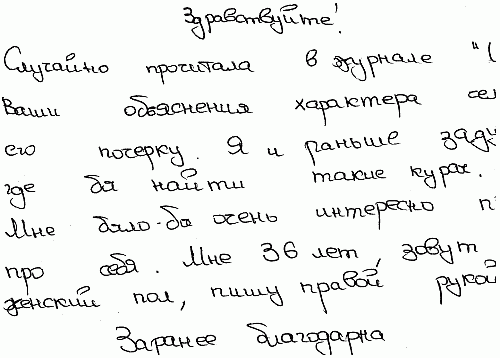 Здравствуйте!
Случайно прочитала в журнале "(
Ваши объяснения характера сел
его почерку. Я и раньше заду
где бы найти такие курсы.
Мне было-бы очень интересно п
про себя. Мне 36 лет, зовут
женский пол, пишу правой рукой
Заранее благодарна